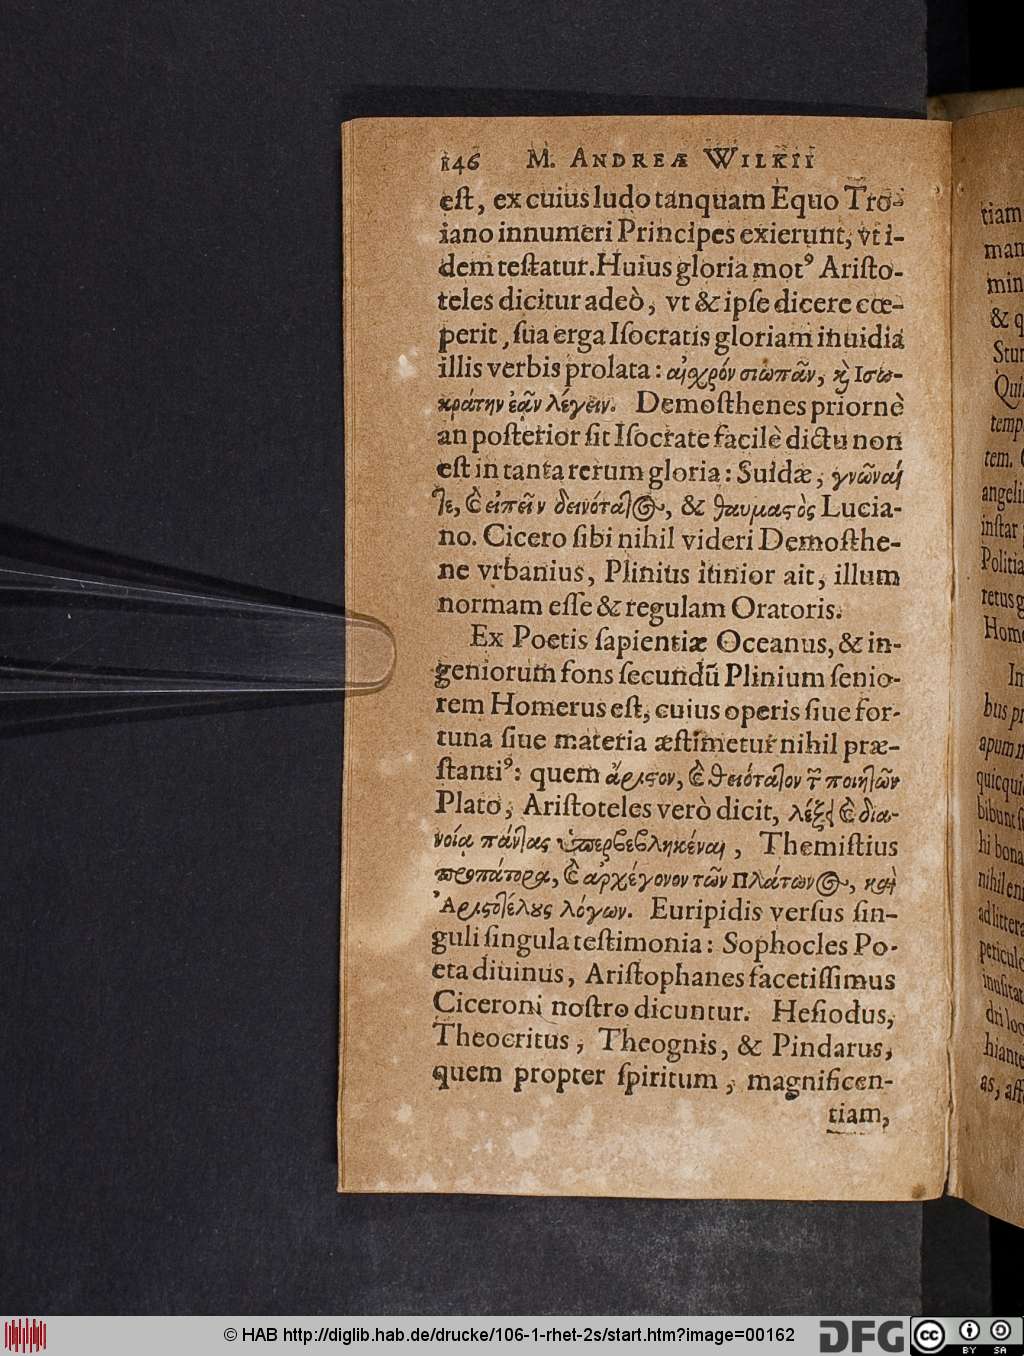 146 M. ANDREÆ WILKII
eſt, ex cuius ludo tanquam Equo Tro-
iano innumeri Principes exierunt, vt i-
dem teſtatur. Huius gloria motꝰ Ariſto-
teles dicitur adeò, vt & ipſe dicere cœ-
perit, ſua erga Iſocratis gloriam inuidia
illis verbis prolata: αἰσχρόν σιωπᾶν, ϗ Ισω-
κράτην ἐᾷν λέγειν. Demoſthenes priornè
an poſterior ſit Iſocrate facilè dictu non
eſt in tanta rerum gloria: Suidæ, γνῶναί
τε, ϗ εἰπεῖν δεινότατος, & θαυμαςὸς Lucia-
no. Cicero ſibi nihil videri Demoſthe-
ne vrbanius, Plinius iunior ait, illum
normam eſſe & regulam Oratoris.
Ex Poetis ſapientiæ Oceanus, & in-
geniorum fons ſecundū Plinium ſenio-
rem Homerus eſt, cuius operis ſiue for-
tuna ſiue materia æſtimetur nihil præ-
ſtantiꝰ: quem ἄριςον, ϗ θειότατον τ̃ ποιητῶν
Plato, Ariſtoteles verò dicit, λέξει ϗ δια-
νοίᾳ πάντας ὑπερβεβληκέναι, Themiſtius
προπάτορα, ϗ ἀρχέγονον τῶν Πλάτωνος, καὶ
Ἀριςοτέλους λόγων. Euripidis verſus ſin-
guli ſingula teſtimonia: Sophocles Po-
eta diuinus, Ariſtophanes facetiſſimus
Ciceroni noſtro dicuntur. Heſiodus,
Theocritus, Theognis, & Pindarus,
quem propter ſpiritum, magnificen-
tiam,
tiam
man
min
& q
Stur
Qui
temp
tem.
angeli
inſtar
Politia
retus g
Home
In
bus pr
apum
quicqui
bibunt
hi bona
nihil eni
ad littera
periculo
inuſitat
dri loc
hiante
as, aff
© HAB http://diglib.hab.de/drucke/106-1-rhet-2s/start.htm?image=00162
DFG cc BY SA